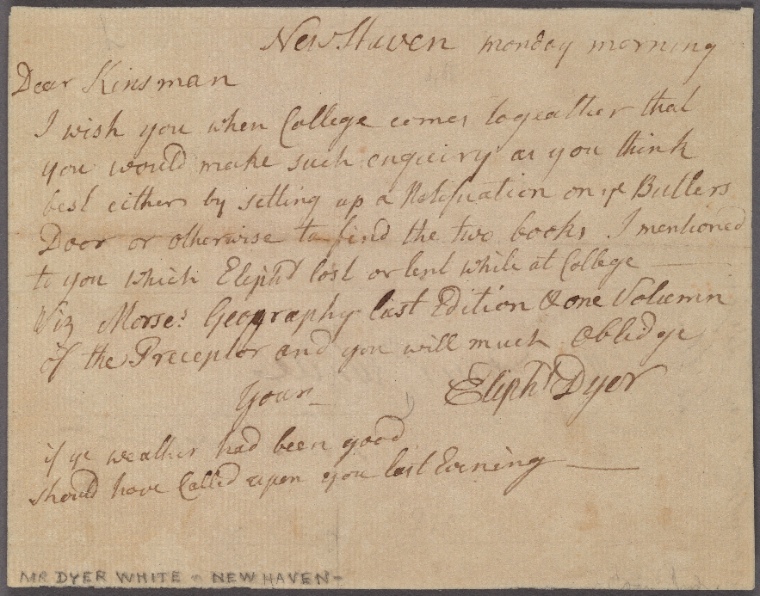 New Haven monday morning
Dear Kinsman
I wish you when College comes togeather that
you would make such enquiry as you think
best either by setting up a Notification on ye Butlers
Door or otherwise to find the two books I mentioned
to you which Eliph.t lost or lent while at College
Viz Morse's Geography last Edition & one Volumn
of the Preceptor and you will much Obledge
Your Eliph.t Dyer
if ye weather had been good
should have Called upon you last Evening
MR DYER WHITE - NEW HAVEN -